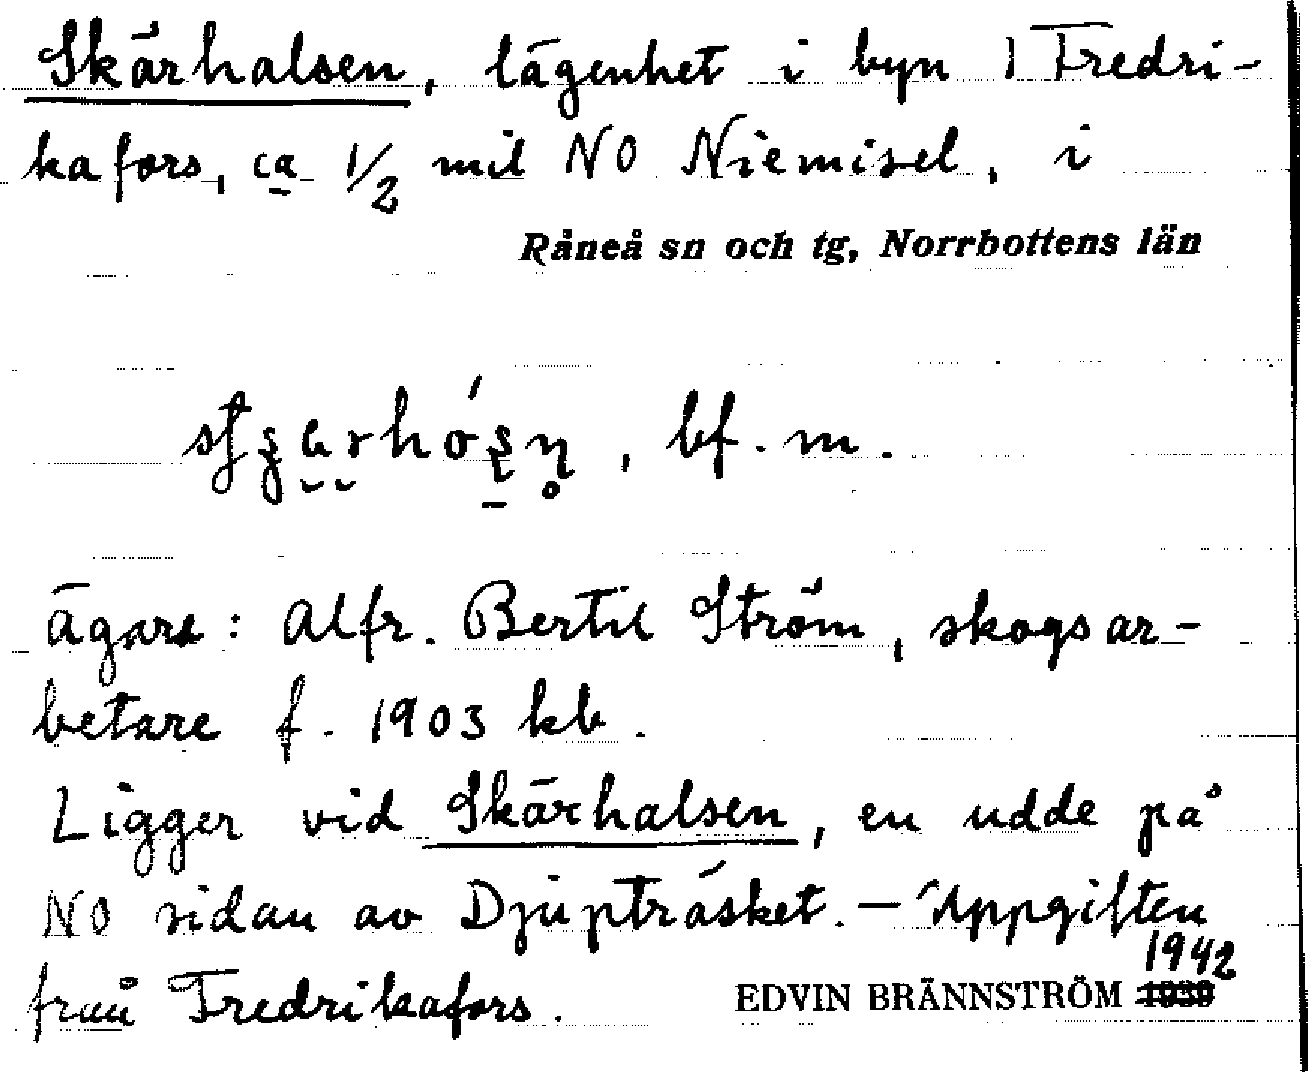 Skärhalsen, lägenhet i byn Fredri-
kafors, ca 1/2 mil NO Niemisel, i
Råneå sn och tg, Norrbottens län
bf. m.
ägare: Alfr. Bertil Ström, skogsar-
betare f. 1903 kb.
Ligger vid Skärhalsen, en udde på
NO sidan av Djupträsket. – Uppgiften
1942
från Fredrikafors.
EDVIN BRÄNNSTRÖM 1939